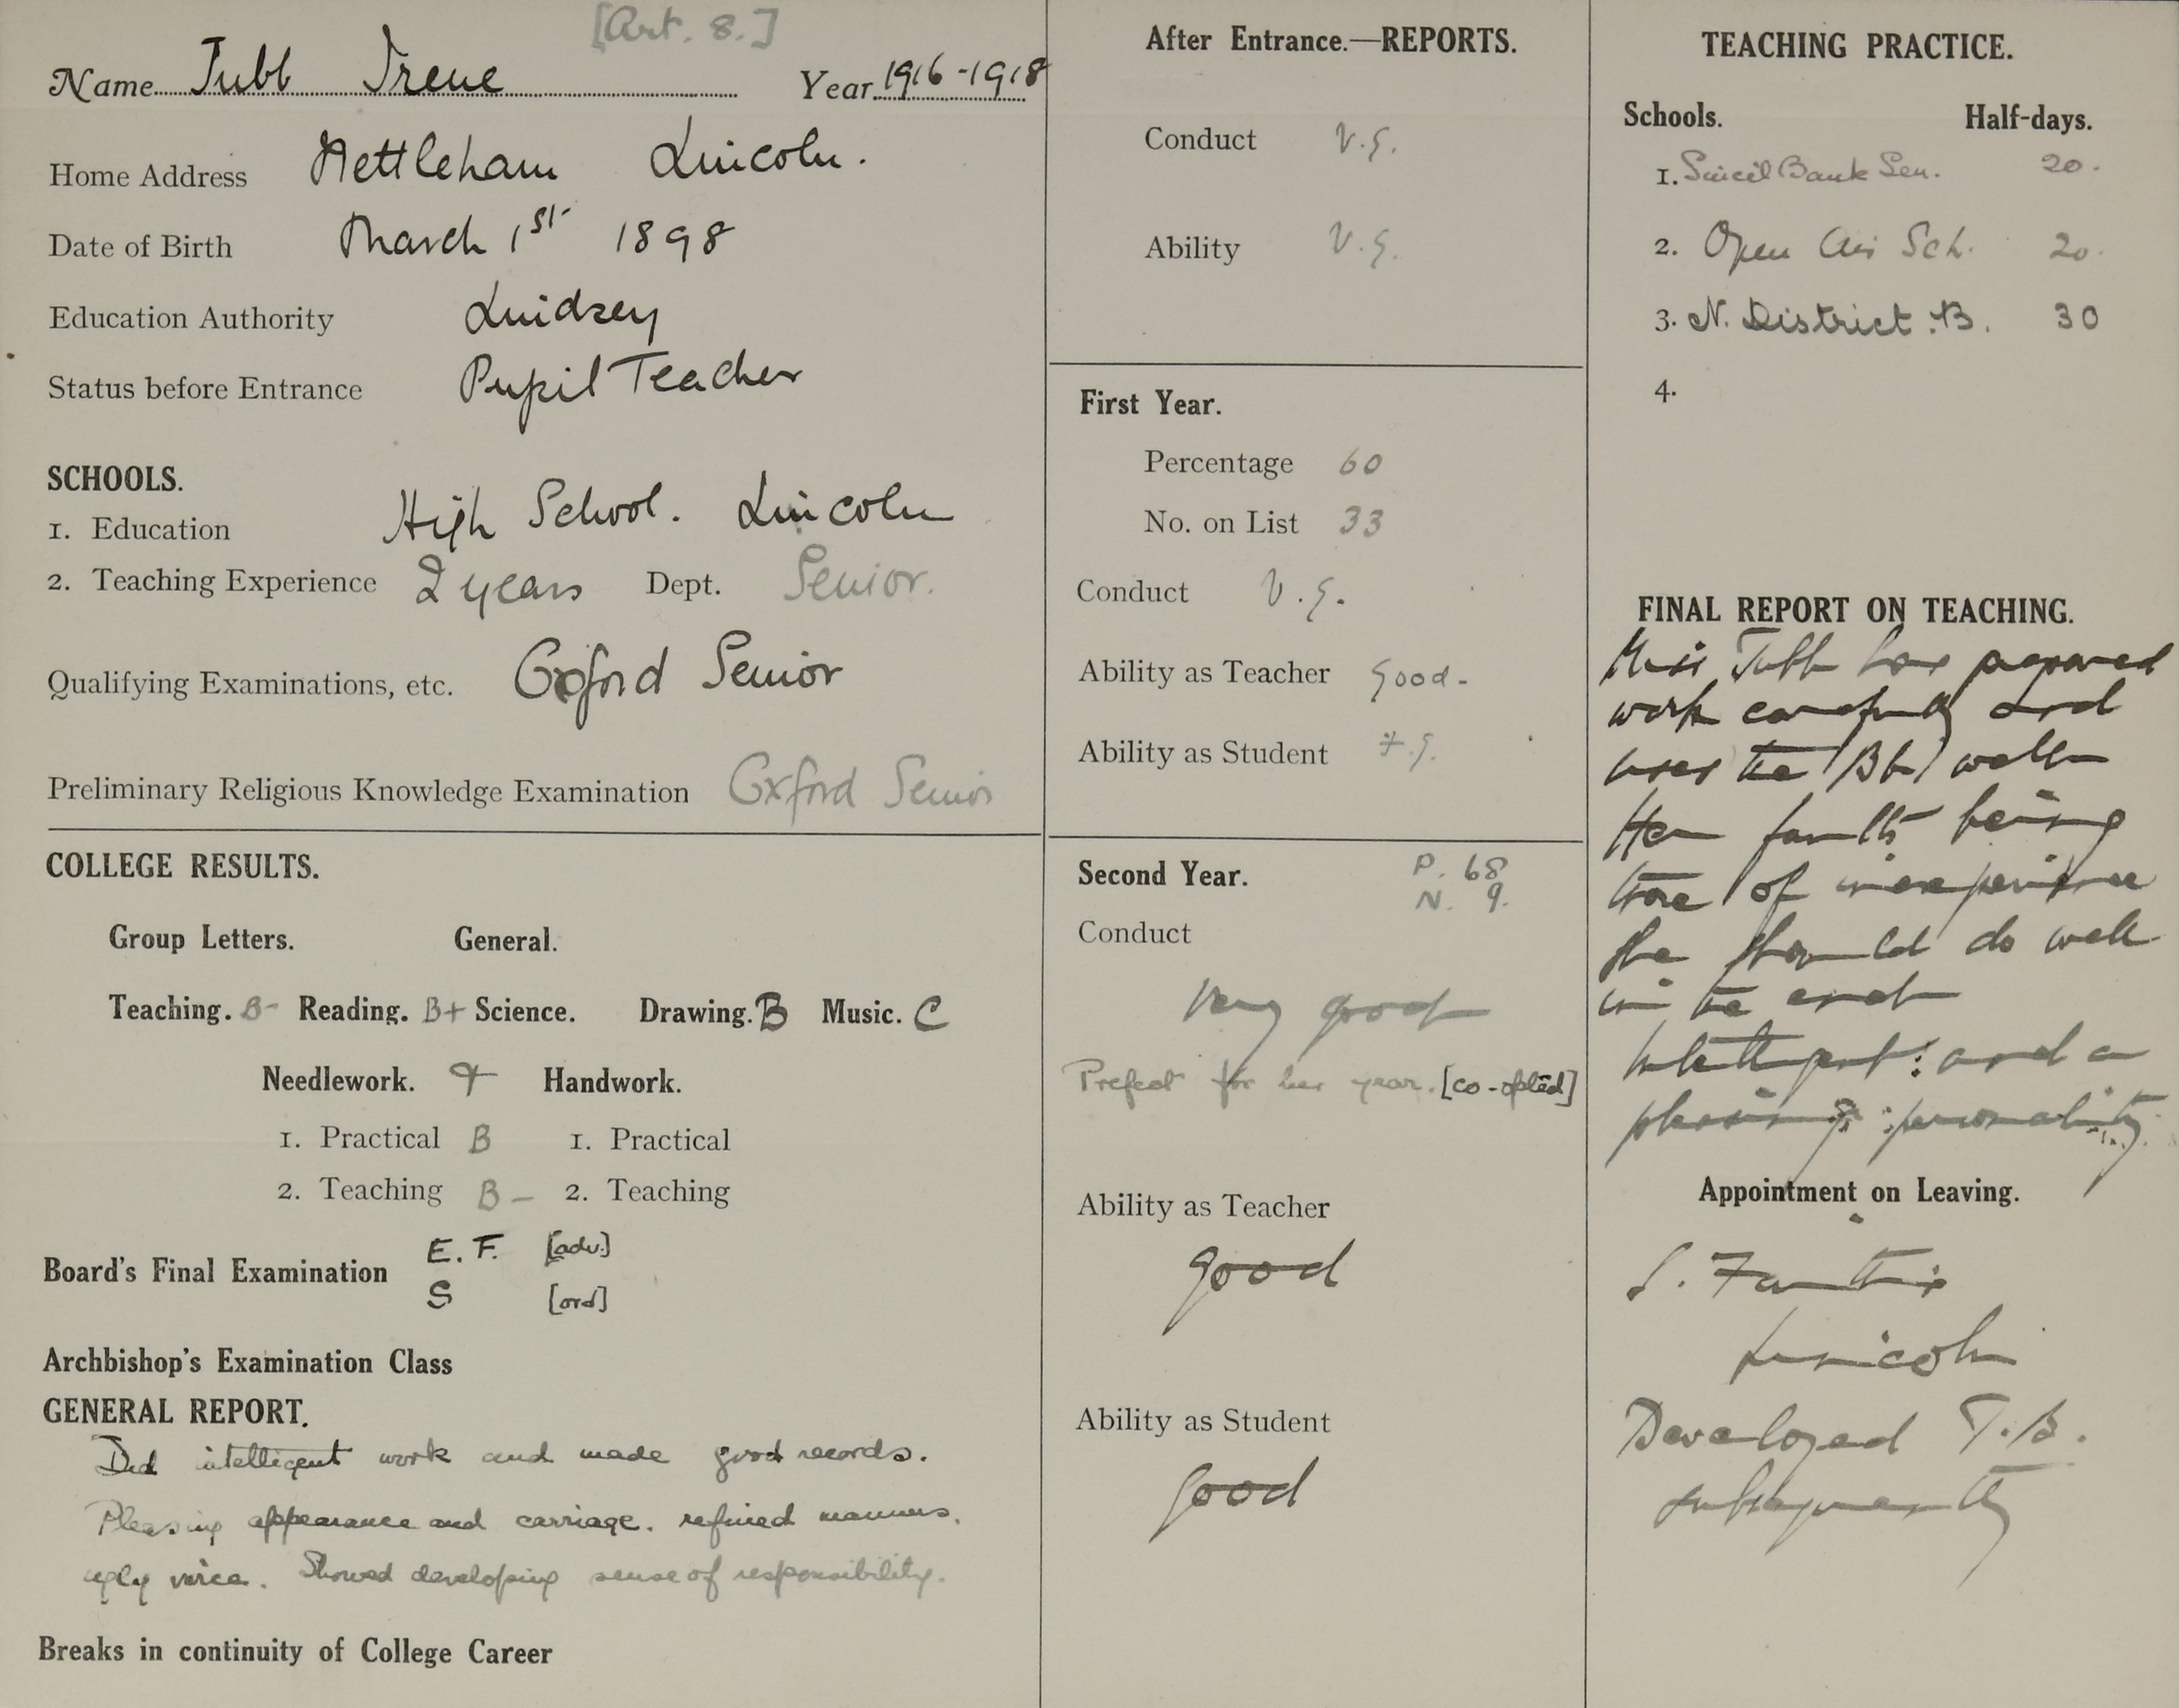 [Art. 8.]
Name Tubb Irene Year 1916-1918
Home Address Nettleham Lincoln.
Date of Birth March 1st 1898
Education Authority Lindsey
Status before Entrance Pupil Teacher
SCHOOLS.
1. Education High School. Lincoln
2. Teaching Experience 2 years Dept. Senior.
Qualifying Examinations, etc. Oxford Senior
Preliminary Religious Knowledge Examination Oxford Senior
COLLEGE RESULTS.
Group Letters. General.
Teaching. B- Reading. B+ Science. Drawing. B Music. C
Needlework. + Handwork.
1. Practical B 1. Practical
2. Teaching B- 2. Teaching
Board's Final Examination E. F. [adv.]
S [ord]
Archbishop's Examination Class
GENERAL REPORT.
Did intelligent work and made good records.
Pleasing appearance and carriage. refined manners.
ugly voice. Showed developing sense of responsibility.
Breaks in continuity of College Career
After Entrance.—REPORTS.
Conduct V.G.
Ability V.G.
First Year.
Percentage 60
No. on List 33
Conduct V.G.
Ability as Teacher Good-
Ability as Student + G.
Second Year. P. 68
N. 9.
Conduct
Very good
Prefect for her year. [co-opted]
Ability as Teacher
good
Ability as Student
good
TEACHING PRACTICE.
Schools. Half-days.
1. Sincil Bank Sen. 20.
2. Open Air Sch. 20.
3. N. District B. 30
4.
FINAL REPORT ON TEACHING.
Miss Tubb has prepared
work carefully and
uses the Bb/ well
Her faults being
those of inexperience
she should do well
in the end
intelligent: and a
pleasing personality.
Appointment on Leaving.
S. Faith's
Lincoln
Developed T.B.
subsequently